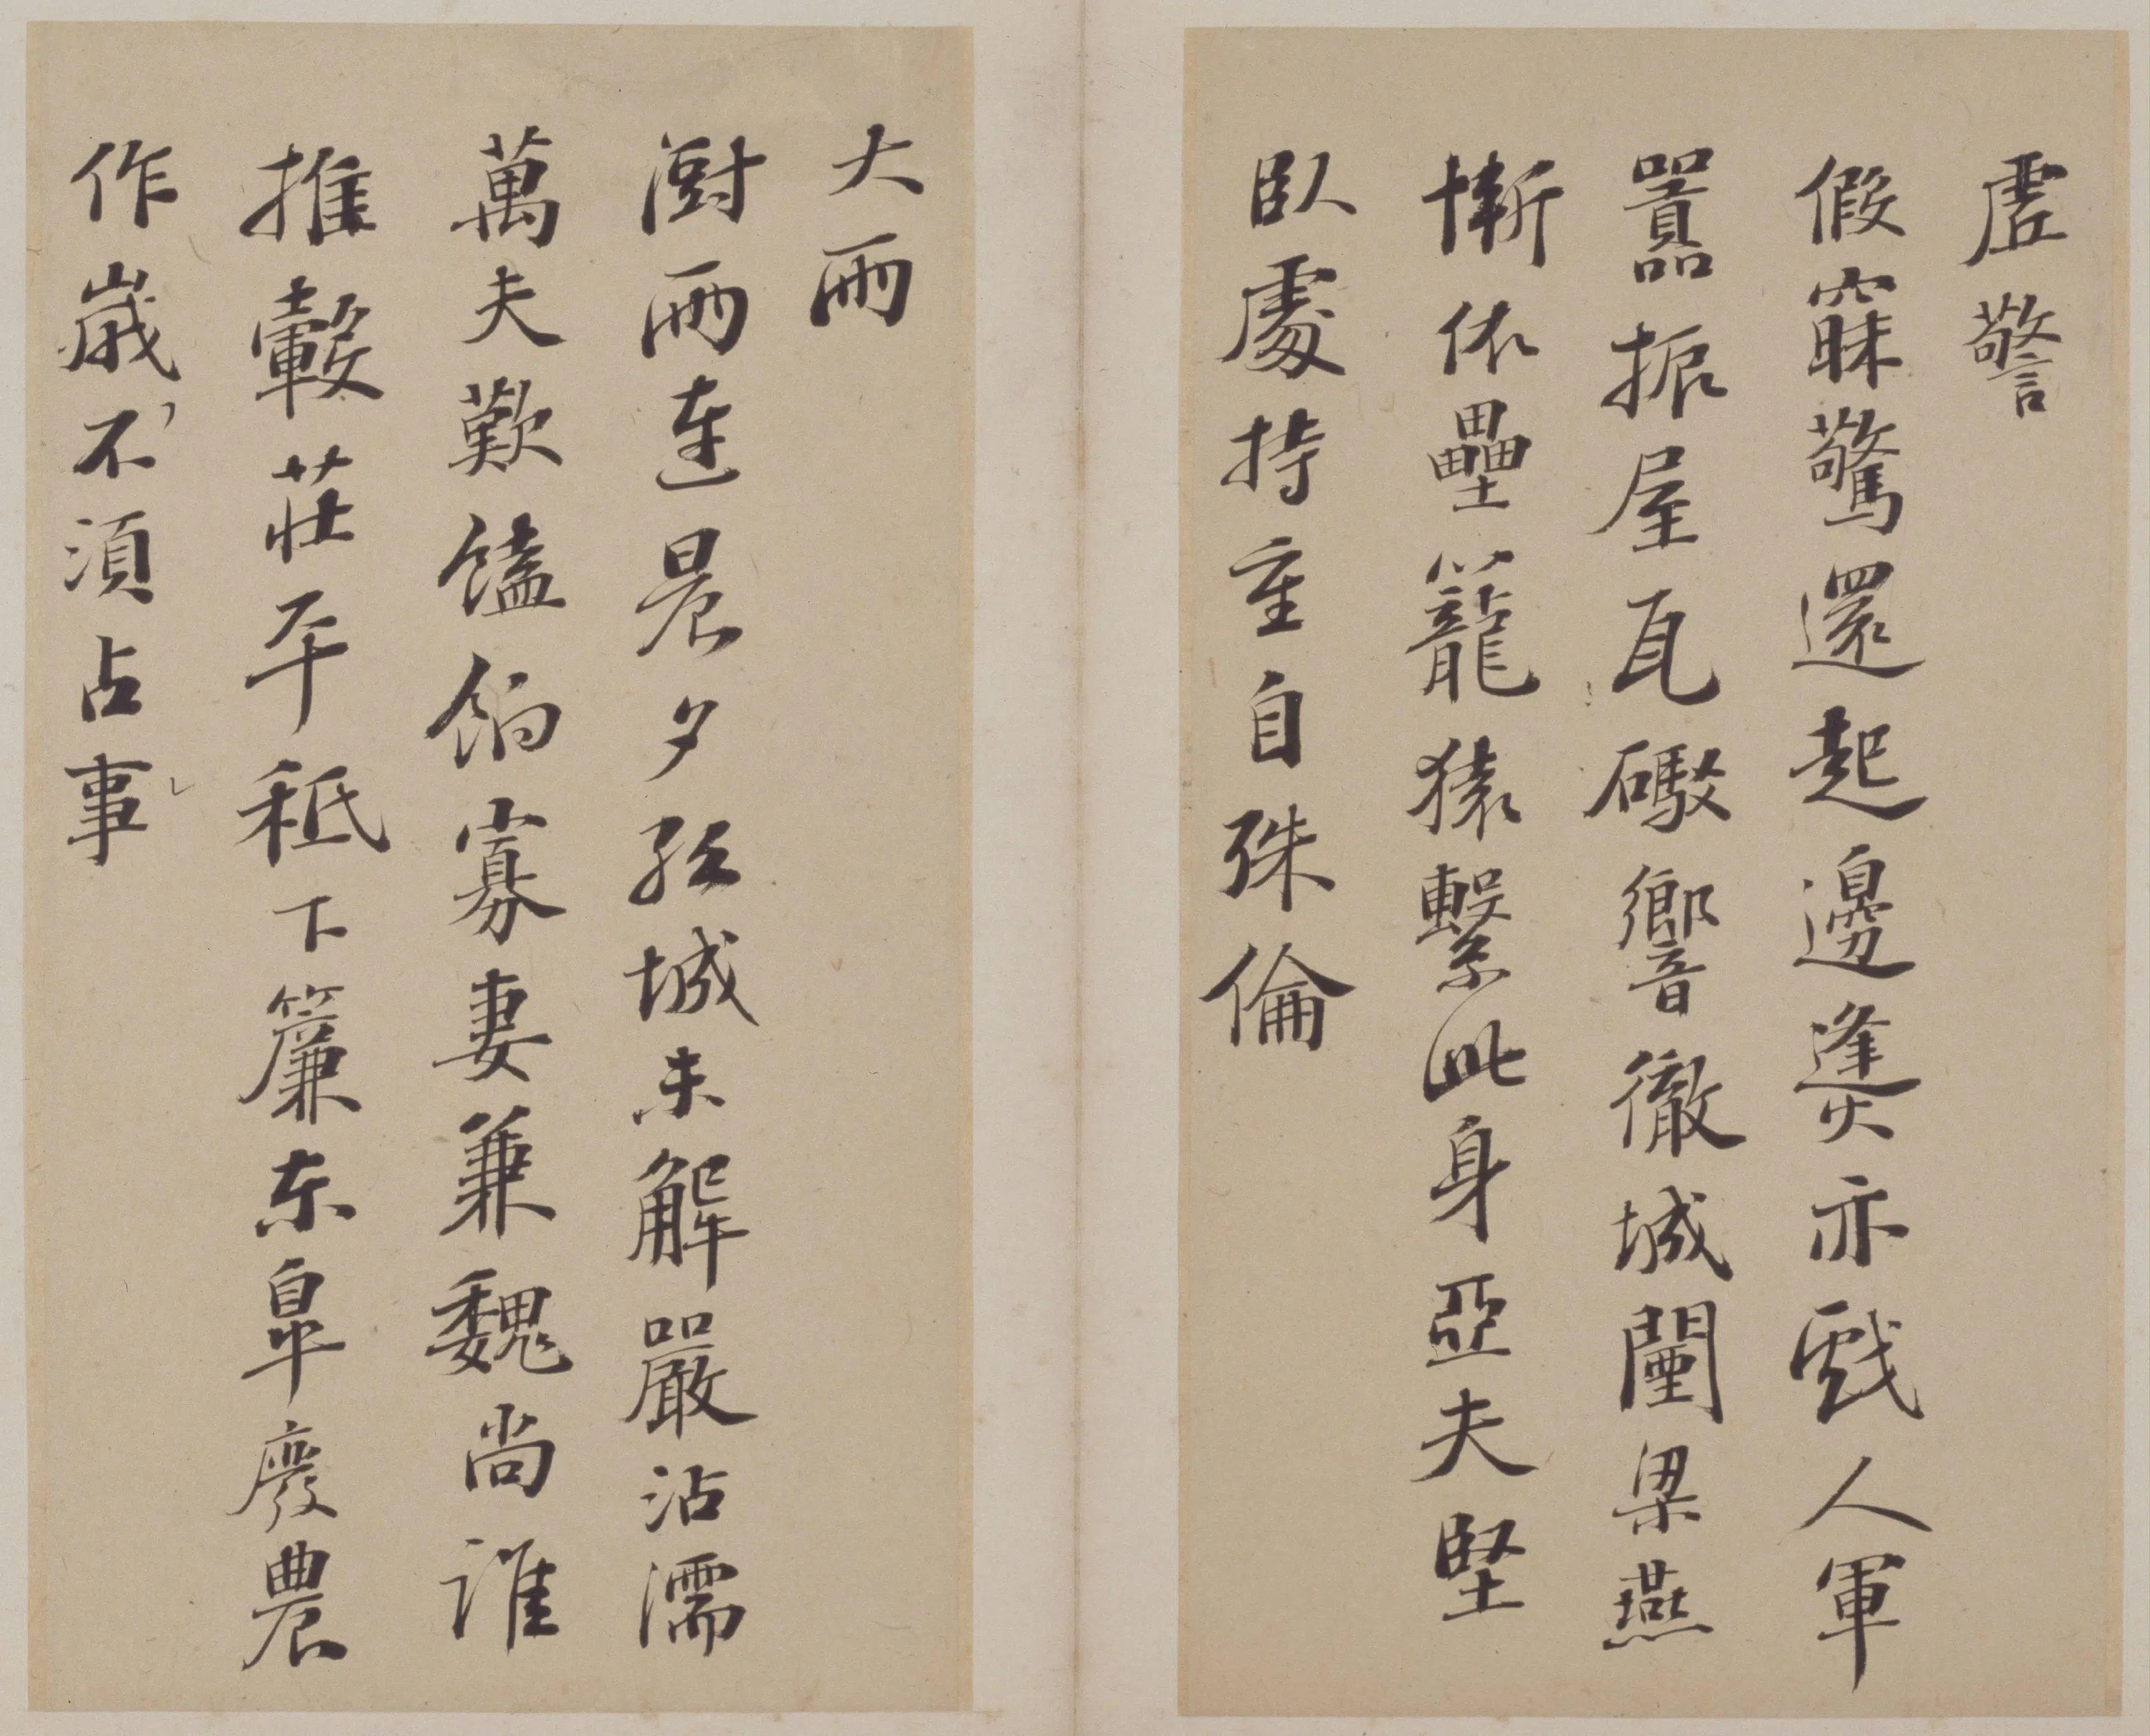 虛警
假寐驚還起邊烽亦戲人軍
囂振屋瓦礮響徹城闉梁燕
慚依壘籠猿繫此身亞夫堅
臥處持重自殊倫
大雨
澍雨連晨夕孤城未解嚴沾濡
萬夫歎饁餉寡妻兼魏尚誰
推轂莊平秪下簾東皋廢農
作歲不須占事